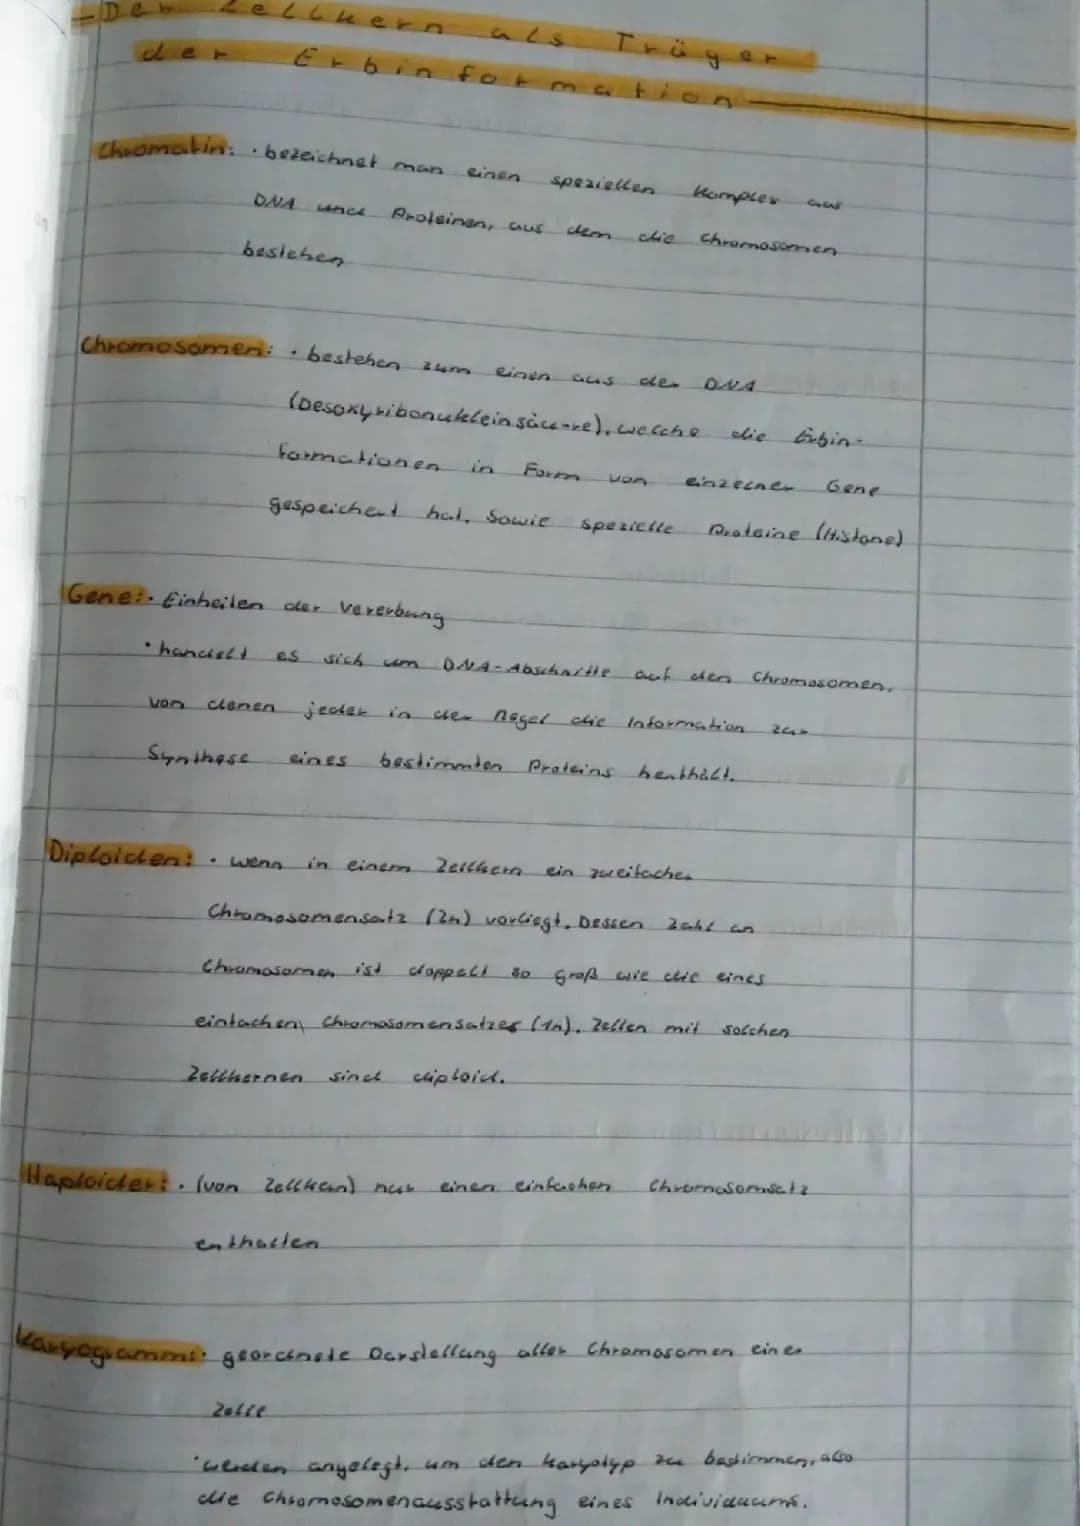 Der Zellkern als Träger
der Erbinformation
Chromatin: • bezeichnet man einen speziellen Komplex aus
DNA und Proteinen, aus dem die Chromosomen
bestehen
Chromosomen: • bestehen zum einen aus der DNA
(Desoxyribonukleinsäure), welche die Erbin-
formationen in Form von einzelner Gene
gespeichert hat. Sowie spezielle Proteine (Histone)
Gene: • Einheiten der Vererbung
• handelt es sich um DNA-Abschnitte auf den Chromosomen,
von denen jeder in der Regel die Information zur
Synthese eines bestimmten Proteins henthält.
Diploiden: • wenn in einem Zellkern ein zweifacher
Chromosomensatz (2n) vorliegt. Dessen Zahl an
Chromosomen ist doppelt so groß wie die eines
einfachen Chromosomensatzes (1n). Zellen mit solchen
Zellkernen sind diploid.
Haploider: • (von Zellkern) nur einen einfachen Chromosomsatz
enthalten
Karyogramm: • geordnete Darstellung aller Chromosomen einer
Zelle
• werden angelegt, um den Karyotyp zu bestimmen, also
die Chromosomenausstattung eines Individuums.